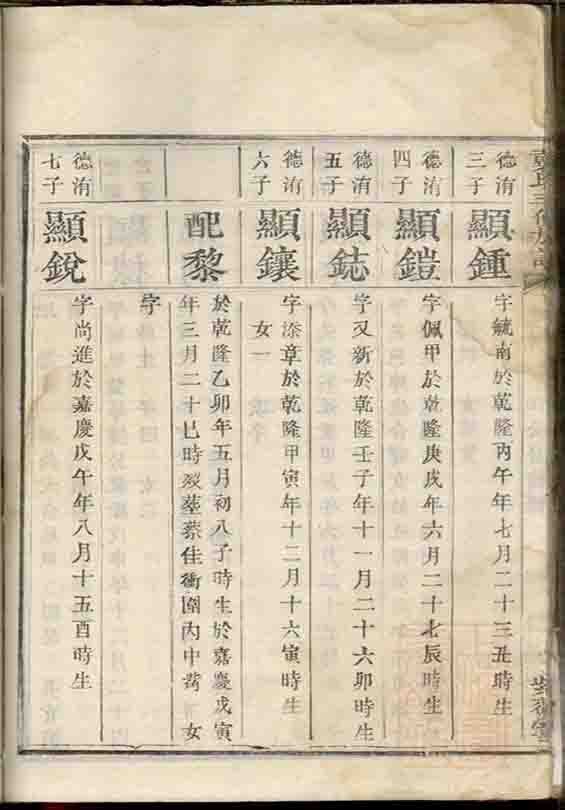 德洧三子
顯鍾
字毓南於乾隆丙午年七月二十三丑時生
德洧四子
顯鎧
字佩甲於乾隆庚戌年六月二十七辰時生
德洧五子
顯鋕
字又新於乾隆壬子年十一月二十六卯時生
德洧六子
顯鑲
字添章於乾隆甲寅年十二月十六寅時生
女一
配黎
於乾隆乙卯年五月初八子時生於嘉慶戊寅
年三月二十巳時歿塟蔡佳衝圍內中嵜女
字
德洧七子
顯銳
字尚進於嘉慶戊午年八月十五酉時生